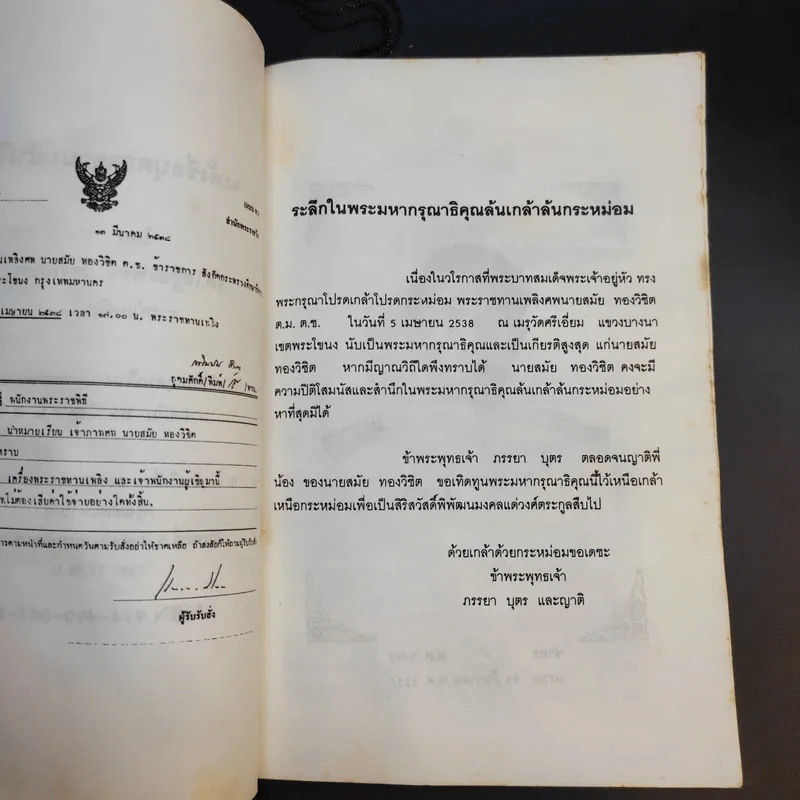 สำนักพระราชวัง
๑๓ มีนาคม ๒๕๓๘
นเพลิงศพ นายสมัย ทองวิชิต ต.ช. ข้าราชการ สังกัดกระทรวงศึกษาธิการ
ระโขนง กรุงเทพมหานคร
เมษายน ๒๕๓๘ เวลา ๑๗.๐๐ น. พระราชทานเพลิง
พนักงานพระราชพิธี
นำหมายเรียน เจ้าภาพศพ นายสมัย ทองวิชิต
ทราบ
เครื่องพระราชทานเพลิง และเจ้าพนักงานผู้เชิญมานี้
ไม่ต้องเสียค่าใช้จ่ายอย่างใดทั้งสิ้น.
การตามหน้าที่และกำหนดวันตามรับสั่งอย่าให้ขาดเหลือ ถ้าสงสัยก็ให้ถามผู้รับรับสั่ง
ผู้รับรับสั่ง
ระลึกในพระมหากรุณาธิคุณล้นเกล้าล้นกระหม่อม
เนื่องในวโรกาสที่พระบาทสมเด็จพระเจ้าอยู่หัว ทรง
พระกรุณาโปรดเกล้าโปรดกระหม่อม พระราชทานเพลิงศพนายสมัย ทองวิชิต
ต.ม. ต.ช. ในวันที่ 5 เมษายน 2538 ณ เมรุวัดศรีเอี่ยม แขวงบางนา
เขตพระโขนง นับเป็นพระมหากรุณาธิคุณและเป็นเกียรติสูงสุด แก่นายสมัย
ทองวิชิต หากมีญาณวิถีใดพึงทราบได้ นายสมัย ทองวิชิต คงจะมี
ความปิติโสมนัสและสำนึกในพระมหากรุณาธิคุณล้นเกล้าล้นกระหม่อมอย่าง
หาที่สุดมิได้
ข้าพระพุทธเจ้า ภรรยา บุตร ตลอดจนญาติพี่
น้อง ของนายสมัย ทองวิชิต ขอเทิดทูนพระมหากรุณาธิคุณนี้ไว้เหนือเกล้า
เหนือกระหม่อมเพื่อเป็นสิริสวัสดิ์พิพัฒนมงคลแด่วงศ์ตระกูลสืบไป
ด้วยเกล้าด้วยกระหม่อมขอเดชะ
ข้าพระพุทธเจ้า
ภรรยา บุตร และญาติ